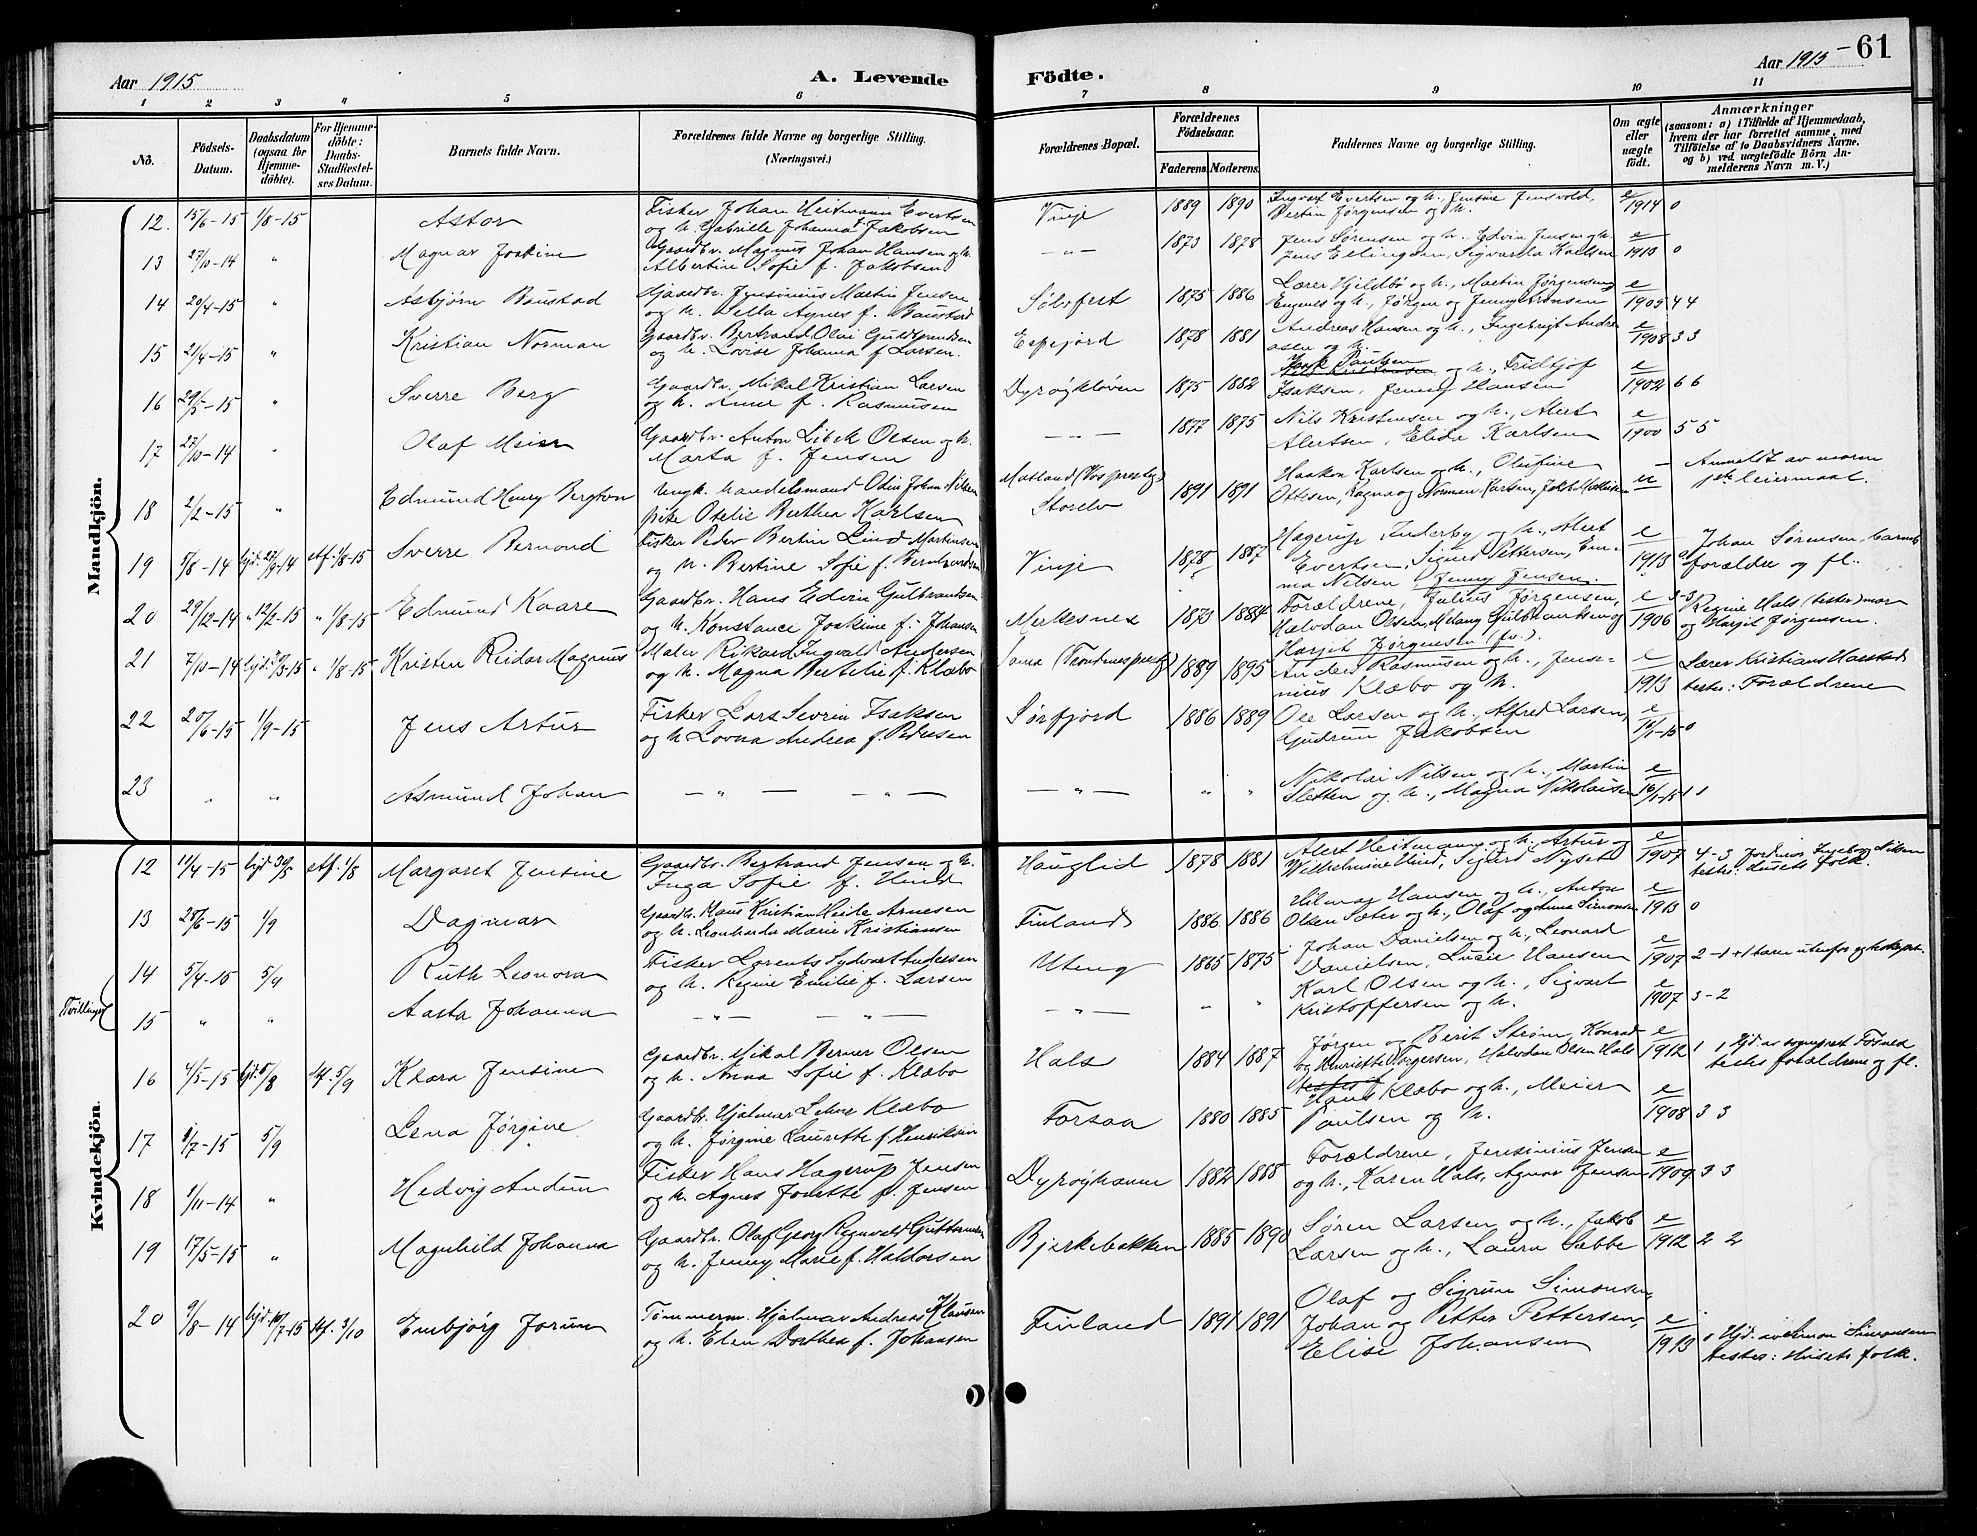 Aar 1915
A. Levende
Födte.
Aar 1915
61
1 2 3 4 5 6 7 8 9 10 11
No.
Födsels-Datum.
Daabsdatum (ogsaa for Hjemme-döbte).
For Hjemme-döbte: Daabs-Stadfæstel-ses Datum.
Barnets fulde Navn.
Forældrenes fulde Navne og borgerlige Stilling.
(Næringsvei.)
Forældrenes Bopæl.
Forældrenes Födselsaar.
Faderens. Moderens.
Faddernes Navne og borgerlige Stilling.
Om ægte eller uægte födt.
Anmærkninger
(saasom: a) i Tilfælde af Hjemmedaab,
hvem der har forrettet samme, med
Tilföielse af to Daabsvidners Navne,
og b) ved uægtefödte Börn An-
melderens Navn m. V.)
Mandkjön.
12. 15/6-15 1/8-15 Astor
Fisker Johan Heitmann Evertsen
og h. Gabrielle Johanna f. Jakobsen
Vinje 1889 1890
Ingvart Evertsen og h., Jensine Jensvold,
Bertin Jørgensen og h.
e/1914 0
13 27/10-14 " Magnar Joakine
Gaardbr. Magnus Johan Hansen og h.
Albertine Sofie f. Jakobsen
— " — 1873 1878
Jens Sørensen og h., Edvin Jensen og h.
Jens Ellingsen, Sigvarda Karlsen
e/1913 0
14 20/4-15 " Asbjørn Baustad
Gaardbr. Jensinius Martin Jensen
og h. Della Agnes f. Baustad
Sølvfest 1875 1886
Lærer Hjeldbø og h., Martin Jørgensen
Engenes og h., Jørgen og Jenny Simonsen
e/1905 4 4
15 21/4-15 " Kristian Norman
Gaardbr. Bertrand Olai Guldbrandsen
og h. Lovise Johanna f. Larsen.
Espejord 1878 1881
Andreas Hansen og h., Ingebrigt Andre
asen og h.
e/1908 3 3
16 29/5-15 " Sverre Berg
Gaardbr. Mikal Kristian Larsen
og h. Anne f. Rasmusen
Dyrøykløven 1875 1882
Paulsen og h., Fridtjof
Isaksen, Jenny Hansen
e/1902 6 6
17 27/10-14 " Olaf Meier
Gaardbr. Anton Libek Olsen og h.
Marta f. Jensen
— " — 1877 1875
Nils Kristensen og h., Alert
Alertsen, Elida Karlsen
e/1900 5 5
18 2/2-15 " Edmund Henry Bergton
Ungk. handelsmand Odin Johan Nilsen
pike Otelie Berthea Karlsen
Matland (Vos prestg)
Storelv 1891 1891
Haakon Karlsen og h., Olufine
Ottesen, Ragna og Norman Karlsen, Jakob Mathisen
u
Anmeldt av moren
1ste leiermaal.
19 5/8-14 hjd. 27/9-14 stf. 1/8-15 Sverre Bernond
Fisker Peder Bertin Lind Martinsen
og h. Bertine Sofie f. Berntzardsen
Vinje 1878 1887
Hagerup Inderby og h., Alert
Evertsen, Signe Pettersen, Em-
ma Nilsen, Jenny Jensen.
e/1913
Johan Sørensen, barnets
forældre og fl.
20 29/12-14 " 12/2-15 " 1/8-15 Edmund Kaare
Gaardbr. Hans Edvin Gulbrandsen
og h. Konstance Joakime f. Johansen
Merkesnes 1873 1884
Forældrene, Julius Jørgensen,
Halvdan Olsen, Melany Guldbrandsen og
Harjit Jørgensen (fv.).
e/1906 3-3
Regine Hals (tester) mor
og Harjit Jørgensen.
21 7/10-14 hjd. /3-15 " 1/8-15 Kristen Reidar Magnus
Maler Rikard Ingvald Andersen
og h. Magna Bertelie f. Klæbo
Sama (Trondenes prestg) 1889 1895
Anders Rasmusen og h., Jense-
nius Klæbo og h.
e/1913
Lærer Kristians Harstad
tester: Forældrene
22 20/6-15 1/9-15 Jens Artur
Fisker Lars Sevrin Isaksen
og h. Lovna Andrea f. Pedersen
Sørfjord 1886 1889
Ole Larsen og h., Alfred Larsen,
Gudrun Jakobsen
e 16/1-15 0
23 " " Asmund Johan — " — — " —
— " — " "
Nikolai Nilsen og h., Martin
Sletten og h., Magna Nikolaisen
e 16/1-15 1 1
Kvindekjön.
12 11/4-15 hjd. 30/5 stf. 1/8 Margaret Jensine
Gaardbr. Bertrand Jensen og h.
Inga Sofie f. Hind
Hauglid 1878 1881
Alert Heitmann og h., Artur og
Wilhelmine Hind, Sigurd Nyseth
e/1907 4-3 Jordmor Ingeborg Nilsen
tester: Husets folk.
13 28/6-15 1/9 Dagmar
Gaardbr. Hans Kristian Heide Arnesen
og h. Leonharda Marie Kristiansen
Finland 1886 1886
Hilmar Hansen og h., Anton
Olsen Sæter og h., Olaf og Anna Simonsen
e/1913 0
Tvillinger
14 5/4-15 5/9 Ruth Leonora
Fisker Lorents Sydvart Andersen
og h. Regine Emilie f. Larsen
Uteng 1865 1875
Johan Danielsen og h., Leonard
Danielsen, Lusie Hansen
e/1907 2-1 + 1 barn utenfor egteskapet.
15 " " Aasta Johanna — " — — " —
— " — " "
Karl Olsen og h., Sigvart
Kristoffersen og h.
e/1907 3-2
16 4/5-15 hjd. 8/8 stf. 5/9 Klara Jensine
Gaardbr. Mikal Berner Olsen
og h. Anna Sofie f. Klæbo
Hals 1884 1887
Jørgen og Berit Strøm, Konrad
og Henriette Torgersen, Halvdan Olsen Hals
e/1912 1 1 Hjd. av sognepret Fosned
tester forældrene og fl.
17 8/7-15 5/9 Lena Jørgine
Gaardbr. Hjalmar Lehne Klæbo
og h. Jørgine Laurette f. Henriksen
Forsaa 1880 1885
Hans Klæbo og h., Meier
Paulsen og h.
e/1908 3 3
18 1/11-14 " Hedvig Audun
Fisker Hans Hagerup Jensen
og h. Agnes Josette f. Jensen
Dyrøyhavn 1882 1888
Forældrene, Jensinius Jensen
og h., Karen Hals, Agnar Jensen
e/1909 3 3
19 17/5-15 " Magnhild Johanna
Gaardbr. Olaf Georg Regnvald Guttormsen
og h. Jenny Marie f. Haldorsen
Bjerkebakken 1885 1890
Søren Larsen og h., Jakob
Larsen og h., Laura Sæbbe
e/1912 2 2
20 9/8-14 hjd. 18/7-15 stf. 3/10 Embjørg Jorunn
Tømmerm. Hjalmar Andreas Klausen
og h. Elen Dorthea f. Johansen
Finland 1891 1891
Olaf og Sigrun Simonsen,
Johan og Petter Pettersen,
Elise Johansen
e/1913
0 Hjd. av Simon Simonsen
tester: Husets folk.